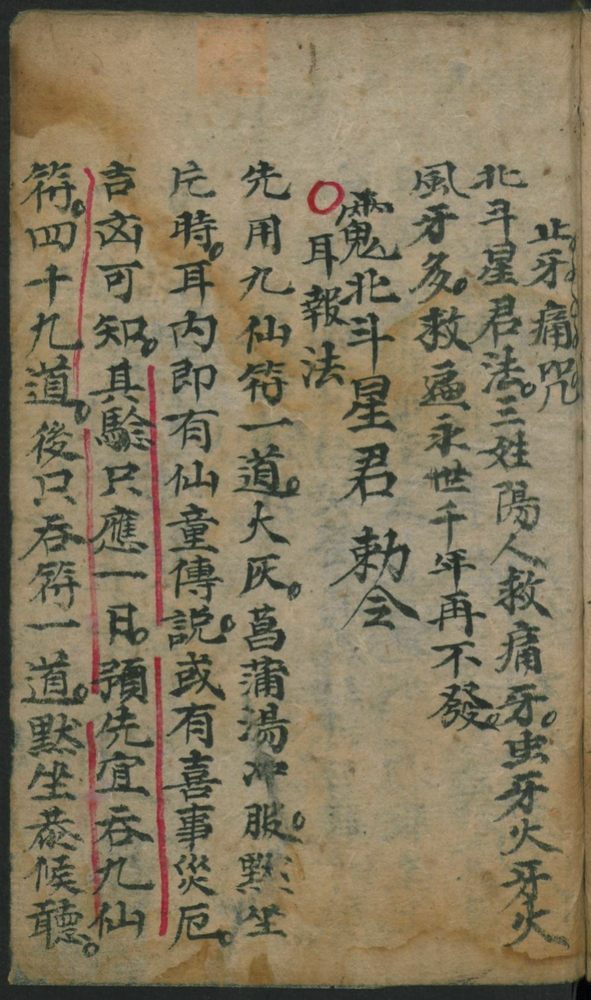 止牙痛咒
北斗星君法。三姓陽人救痛牙。虫牙火牙火
風牙多。救遍永世千年再不發。
北斗星君 勅令
耳報法
先用九仙符一道。火灰。菖蒲湯冲服。默坐
片時。耳内即有仙童傳説。或有喜事災厄。
吉凶可知。其驗只應一日。預先宜吞九仙
符。四十九道。後只吞符一道。默坐恭候聽。